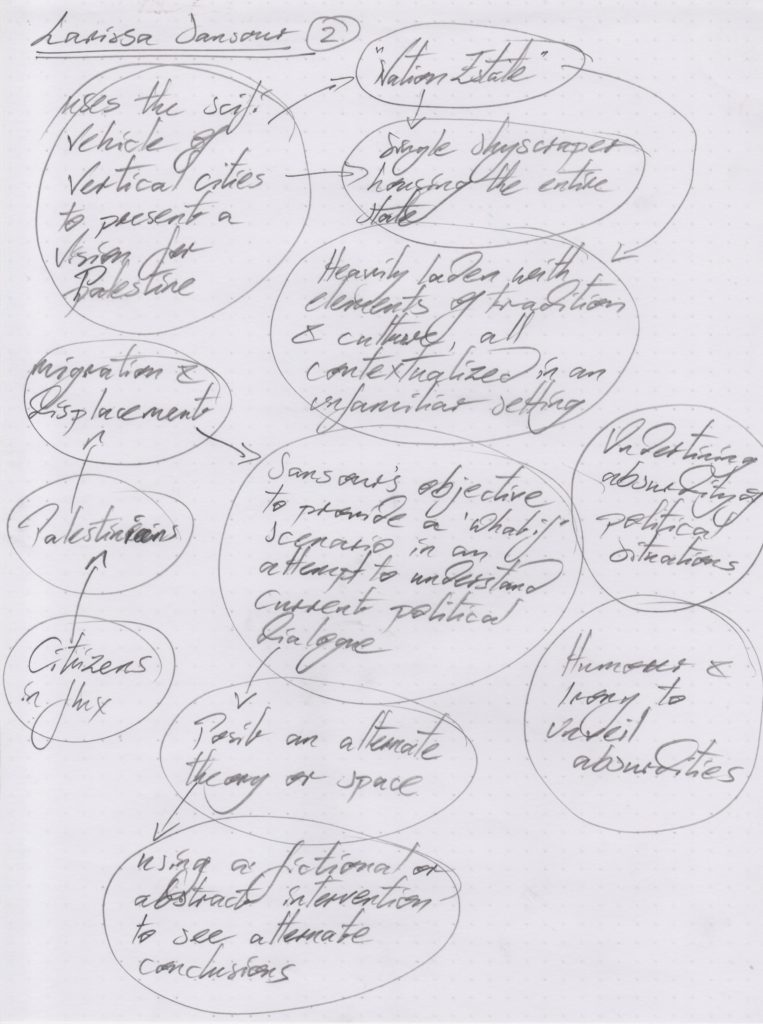 Larissa Sansour 2
"Nation Estate"
uses the sci fi
vehicle of
vertical cities
to present a
vision for
Palestine
Single skyscraper
housing the entire
state
Heavily laden with
elements of tradition
& culture, all
contextualized in an
unfamiliar setting
migration &
displacement
Palestinians
Citizens
in flux
Sansour's objective
to provide a 'what if'
scenario in an
attempt to understand
current political
dialogue
Underlining
absurdity of
political
situations
Humour &
Irony to
unveil
absurdities
Posit an alternate
theory or space
using a fictional or
abstract intervention
to see alternate
conclusions